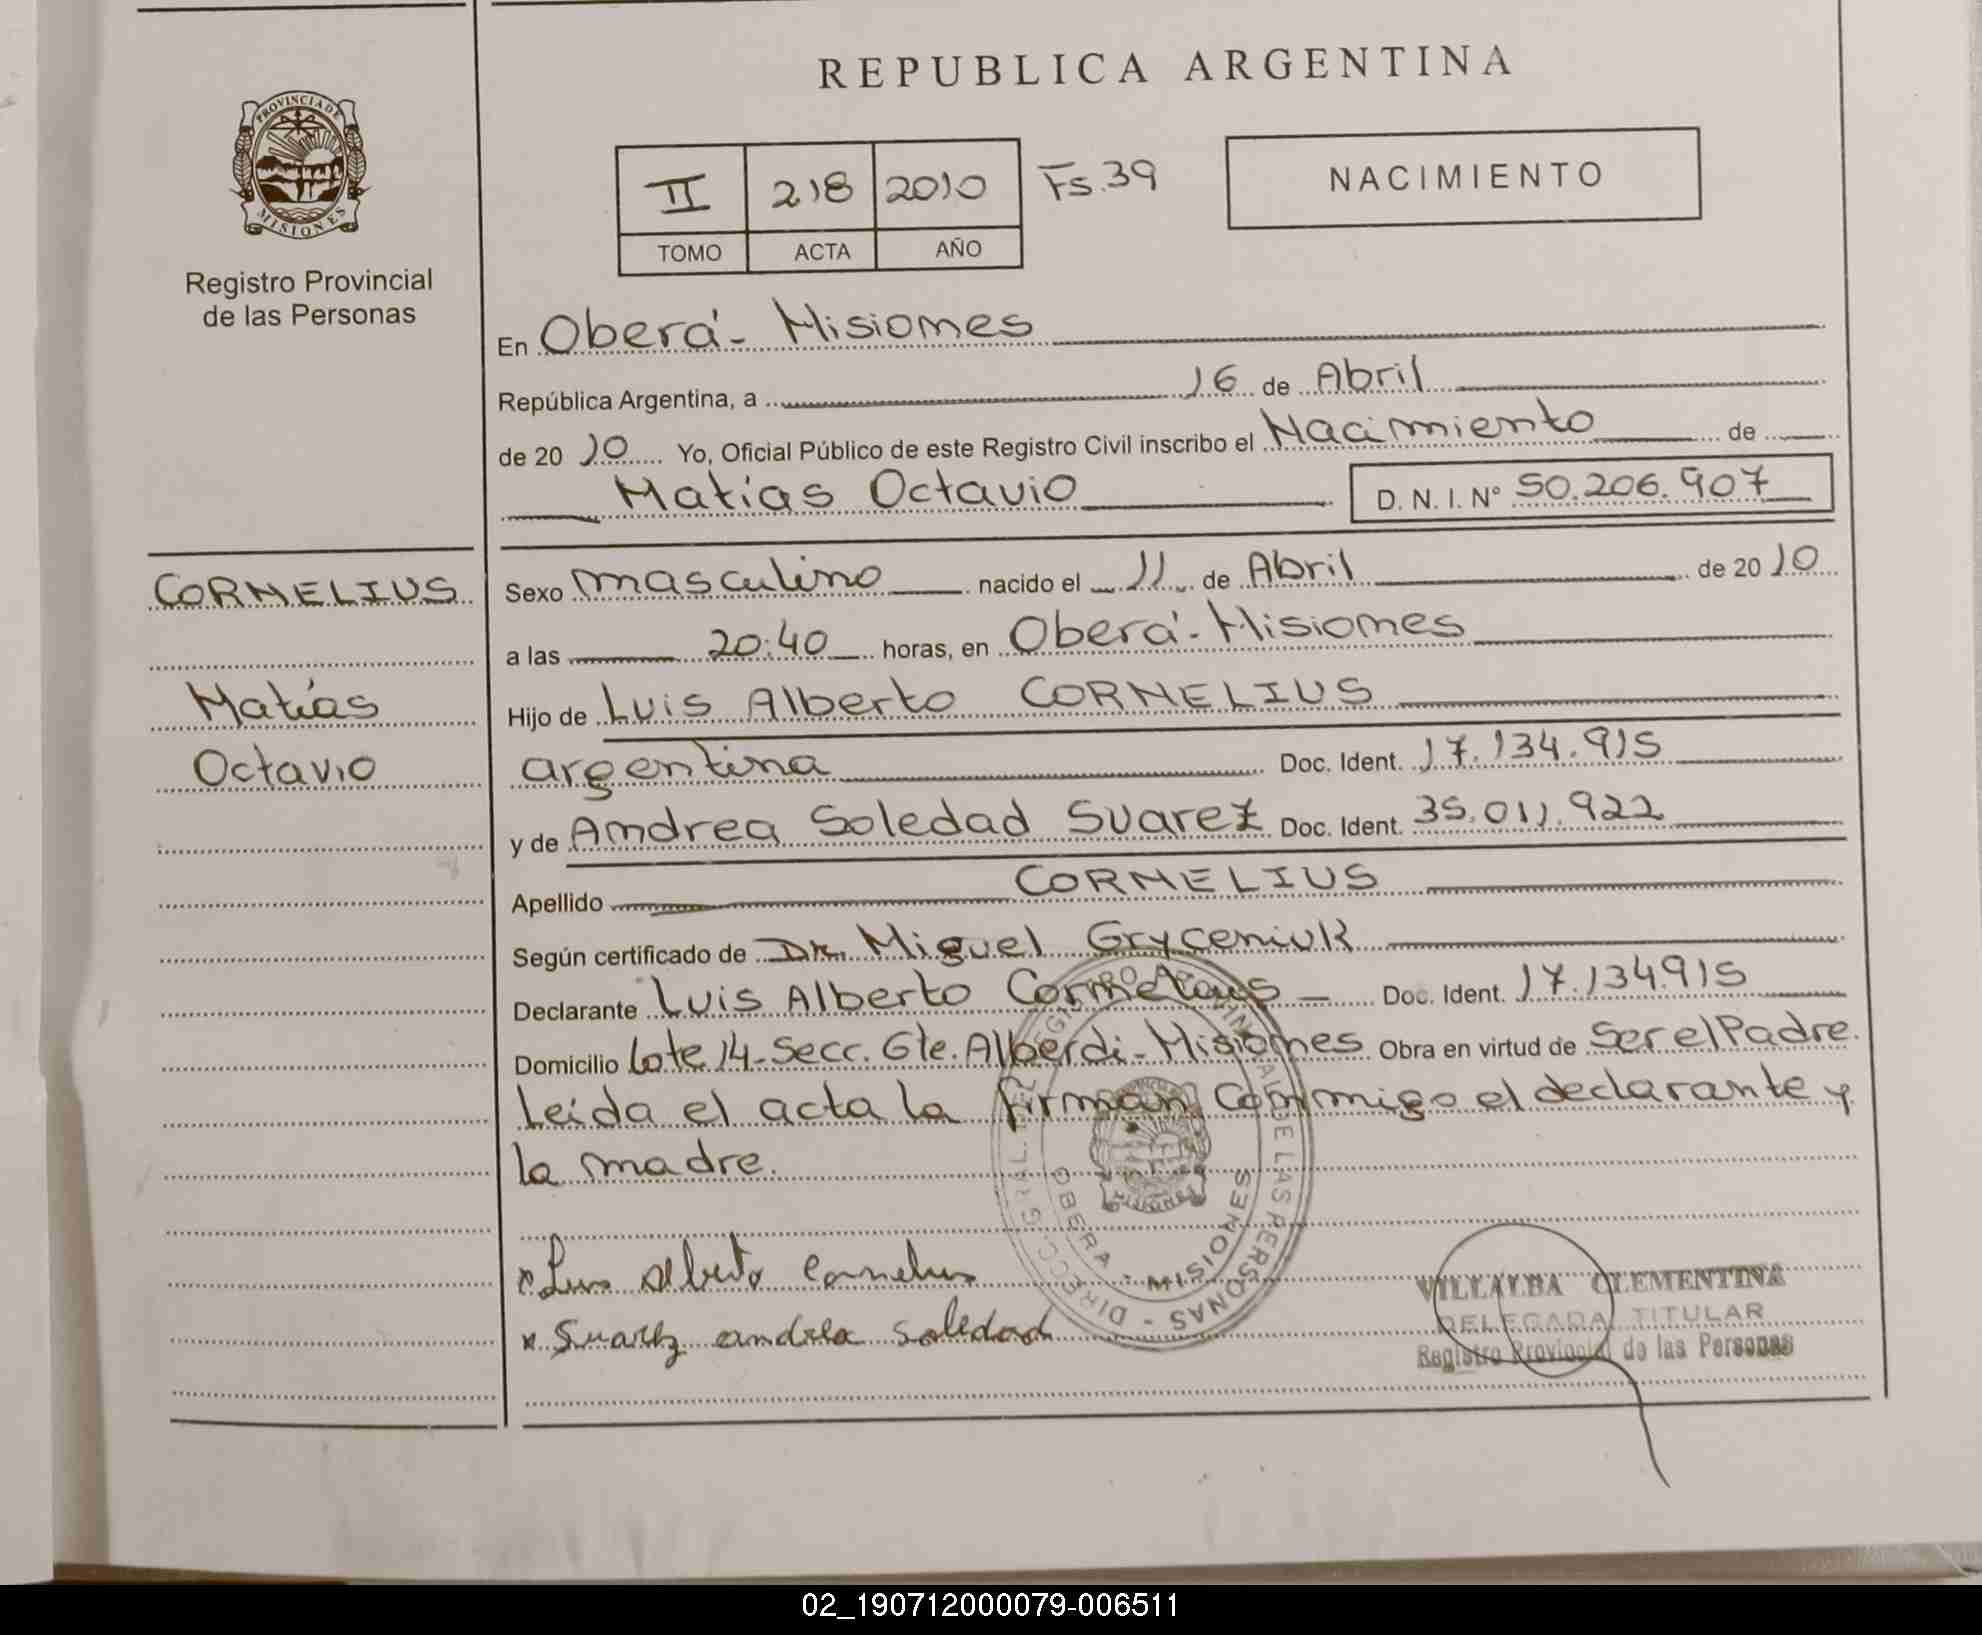 REPUBLICA ARGENTINA
PROVINCIA DE
MISIONES
Registro Provincial
de las Personas
II 218 2010 Fs.39
TOMO ACTA AÑO
NACIMIENTO
En Oberá - Misiones
República Argentina, a 16 de Abril
de 20 10 Yo, Oficial Público de este Registro Civil inscribo el Nacimiento de
Matías Octavio D. N. I. N° 50.206.907
CORNELIUS
Matías
Octavio
Sexo masculino nacido el 11 de Abril de 20 10
a las 20:40 horas, en Oberá - Misiones
Hijo de Luis Alberto CORNELIUS
argentina Doc. Ident. 17.134.915
y de Andrea Soledad Suarez Doc. Ident. 35.011.922
Apellido CORNELIUS
Según certificado de Dr. Miguel Gryceniuk
Declarante Luis Alberto Cornelius Doc. Ident. 17.134.915
Domicilio Lote 14 - Secc. Gte. Alberdi - Misiones Obra en virtud de Ser el Padre.
Leída el acta la firman conmigo el declarante y
la madre.
OBERA - MISIONES
x Luis Alberto Cornelius
x Suarez andrea Soledad
VILLALBA CLEMENTINA
DELEGADA TITULAR
Registro Provincial de las Personas
02_190712000079-006511